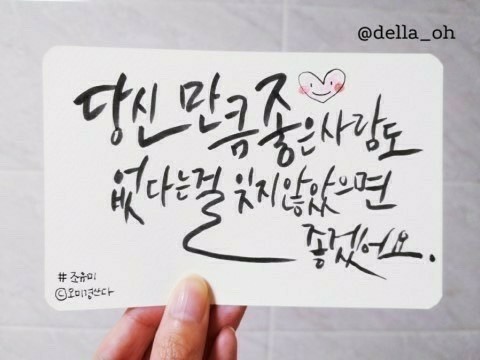 @della_oh
당신 만큼 좋은 사람도
없다는걸 잊지않았으면
좋겠어요.
#조유미
ⓒ오미경쓰다